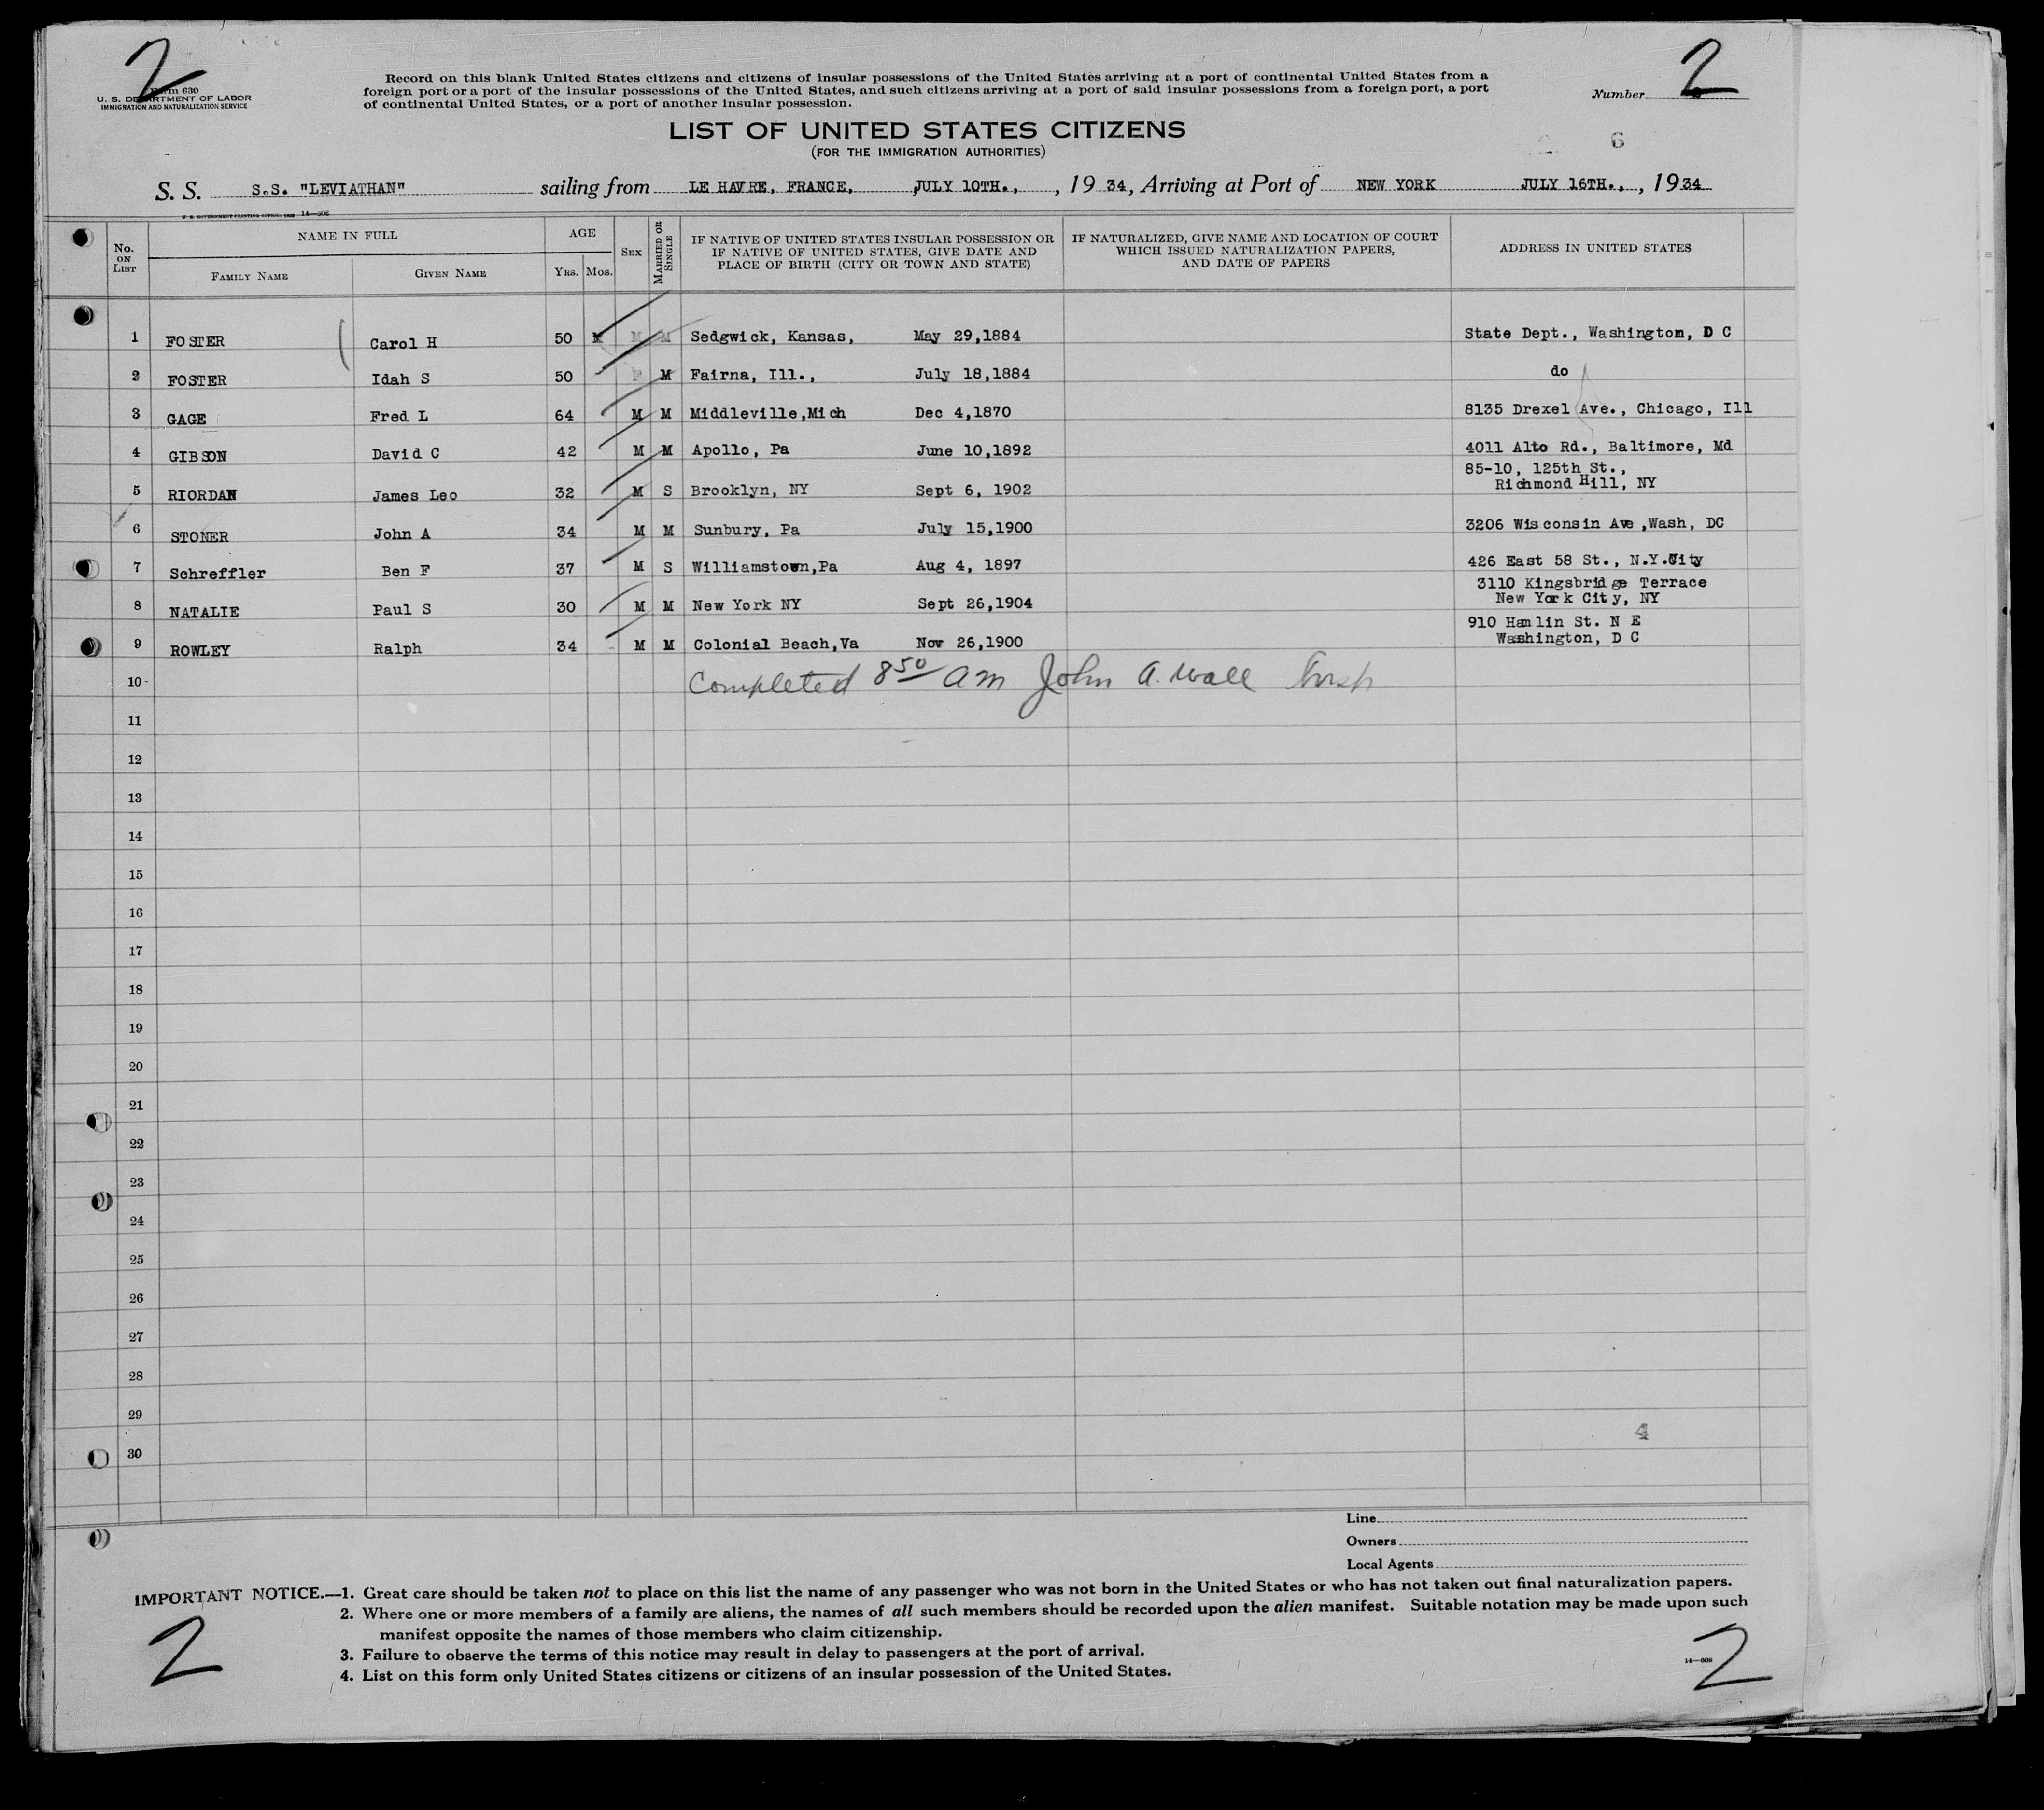 2
2
Form 630
U. S. DEPARTMENT OF LABOR
IMMIGRATION AND NATURALIZATION SERVICE
Record on this blank United States citizens and citizens of insular possessions of the United States arriving at a port of continental United States from a
foreign port or a port of the insular possessions of the United States, and such citizens arriving at a port of said insular possessions from a foreign port, a port
of continental United States, or a port of another insular possession.
Number
LIST OF UNITED STATES CITIZENS
(FOR THE IMMIGRATION AUTHORITIES)
6
S. S. S.S. "LEVIATHAN" sailing from LE HAVRE, FRANCE, JULY 10TH., , 19 34, Arriving at Port of NEW YORK JULY 16TH., , 19 34
U. S. GOVERNMENT PRINTING OFFICE: 1932 14—608
No. ON LIST NAME IN FULL AGE SEX MARRIED OR SINGLE IF NATIVE OF UNITED STATES INSULAR POSSESSION OR IF NATIVE OF UNITED STATES, GIVE DATE AND PLACE OF BIRTH (CITY OR TOWN AND STATE) IF NATURALIZED, GIVE NAME AND LOCATION OF COURT WHICH ISSUED NATURALIZATION PAPERS, AND DATE OF PAPERS ADDRESS IN UNITED STATES
FAMILY NAME GIVEN NAME YRS. MOS.
1 FOSTER Carol H 50 M M Sedgwick, Kansas, May 29,1884 State Dept., Washington, D C
2 FOSTER Idah S 50 F M Fairna, Ill., July 18,1884 do
3 GAGE Fred L 64 M M Middleville,Mich Dec 4,1870 8135 Drexel Ave., Chicago, Ill
4 GIBSON David C 42 M M Apollo, Pa June 10,1892 4011 Alto Rd., Baltimore, Md
5 RIORDAN James Leo 32 M S Brooklyn, NY Sept 6, 1902 85-10, 125th St.,
Richmond Hill, NY
6 STONER John A 34 M M Sunbury, Pa July 15,1900 3206 Wisconsin Ave ,Wash, DC
7 Schreffler Ben F 37 M S Williamstown,Pa Aug 4, 1897 426 East 58 St., N.Y.City
8 NATALIE Paul S 30 M M New York NY Sept 26,1904 3110 Kingsbridge Terrace
New York City, NY
9 ROWLEY Ralph 34 M M Colonial Beach,Va Nov 26,1900 910 Hamlin St. N E
Washington, D C
10 Completed 8 50 am John A. Wall
11
12
13
14
15
16
17
18
19
20
21
22
23
24
25
26
27
28
29
4
30
Line
Owners
Local Agents
IMPORTANT NOTICE.—1. Great care should be taken not to place on this list the name of any passenger who was not born in the United States or who has not taken out final naturalization papers.
2. Where one or more members of a family are aliens, the names of all such members should be recorded upon the alien manifest. Suitable notation may be made upon such
manifest opposite the names of those members who claim citizenship.
3. Failure to observe the terms of this notice may result in delay to passengers at the port of arrival.
4. List on this form only United States citizens or citizens of an insular possession of the United States.
14—608
2
2